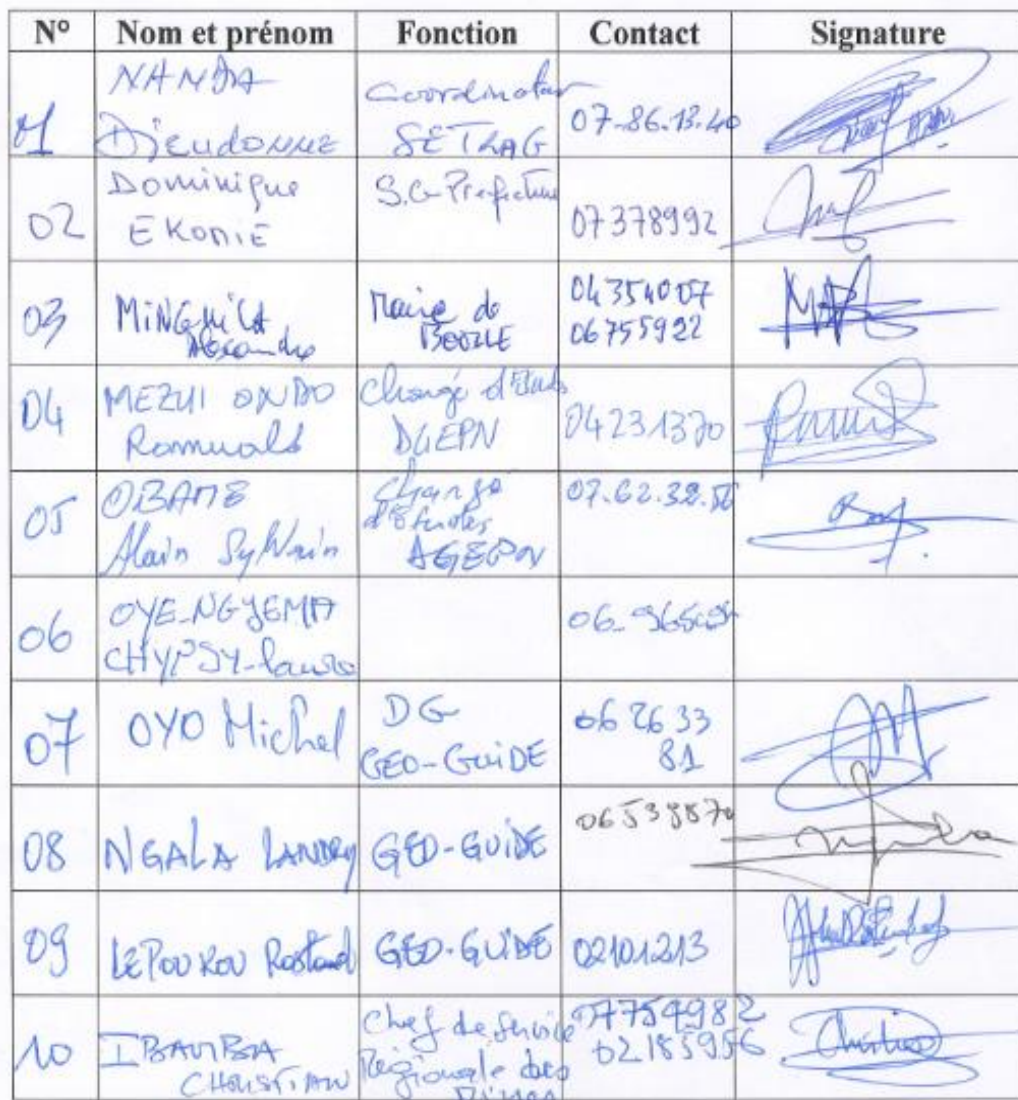 N° Nom et prénom Fonction Contact Signature
01 NANDA Dieudonne Coordinateur SETRAG 07-86.13.40
02 Dominique EKOMIE S.G Prefecture 07378992
03 MINGUILA Alexandre Maire de BOOUE 04354007 06755922
04 MEZUI ONDO Romuald Chargé d'Etudes DGEPN 04231370
05 OBAME Alain Sylvain Chargé d'Etudes 07.62.32.56
06 OYE-NGYEMA CHYPSY-Laure
07 OYO Michel DG GEO-GUIDE 06 26 33 81
08 NGALA LANDRY GEO-GUIDE 06538870
09 LEPOUKOU Rostand GEO-GUIDE 02101213
10 CHRISTIAN Chef de Service Régionale des Mines 07754982 02185956